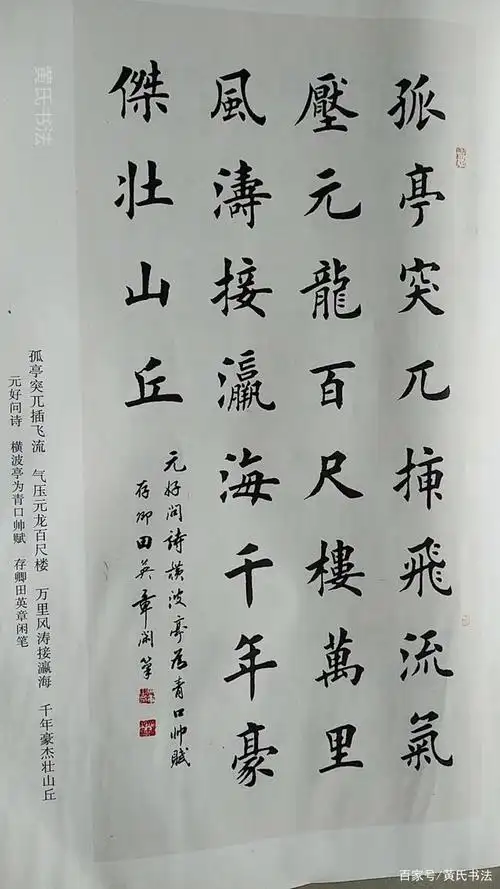 孤亭突兀揷飛流氣
壓元龍百尺樓萬里
風濤接瀛海千年豪
傑壯山丘
元好问詩横波亭为青口帅賦
存卿田英章闲筆
孤亭突兀插飞流　气压元龙百尺楼　万里风涛接瀛海　千年豪杰壮山丘
元好问诗　横波亭为青口帅赋　存卿田英章闲笔
黄氏书法
百家号/黄氏书法